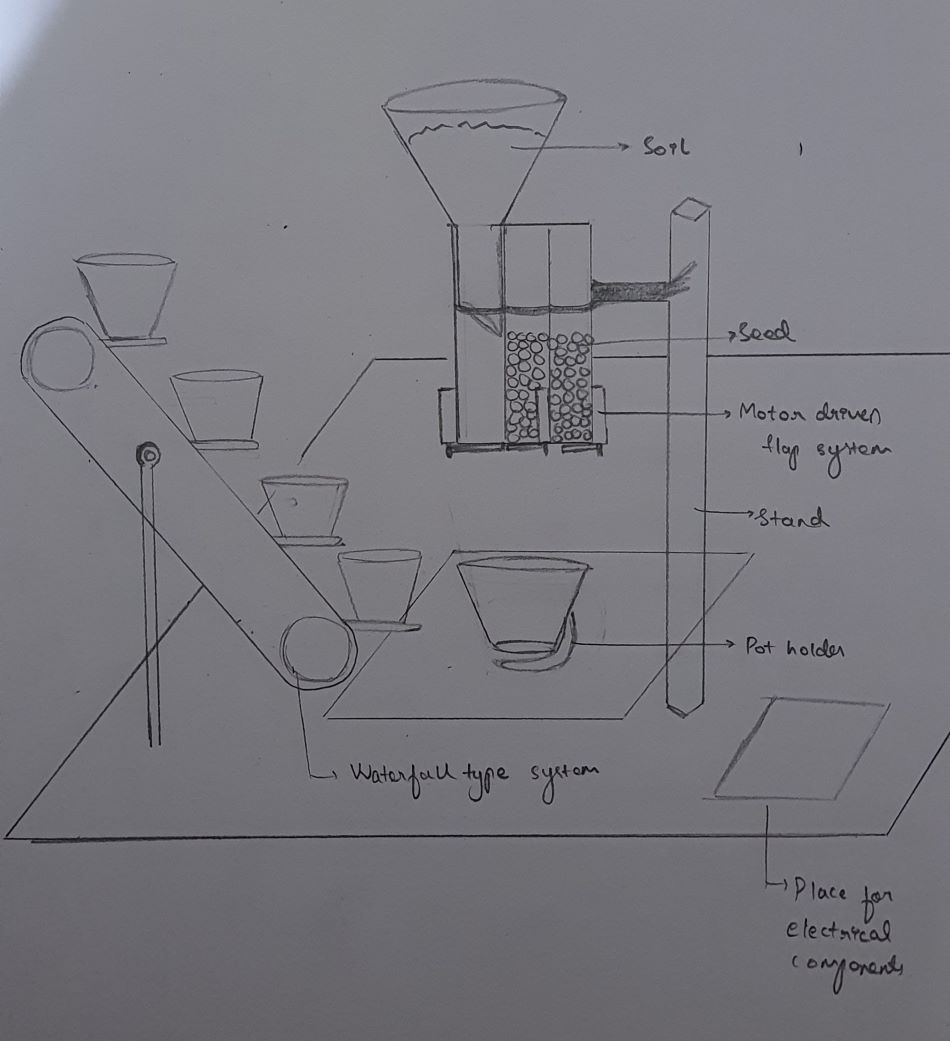 Soil
Seed
Motor driven
flap system
Stand
Pot holder
Waterfall type system
Place for
electrical
components